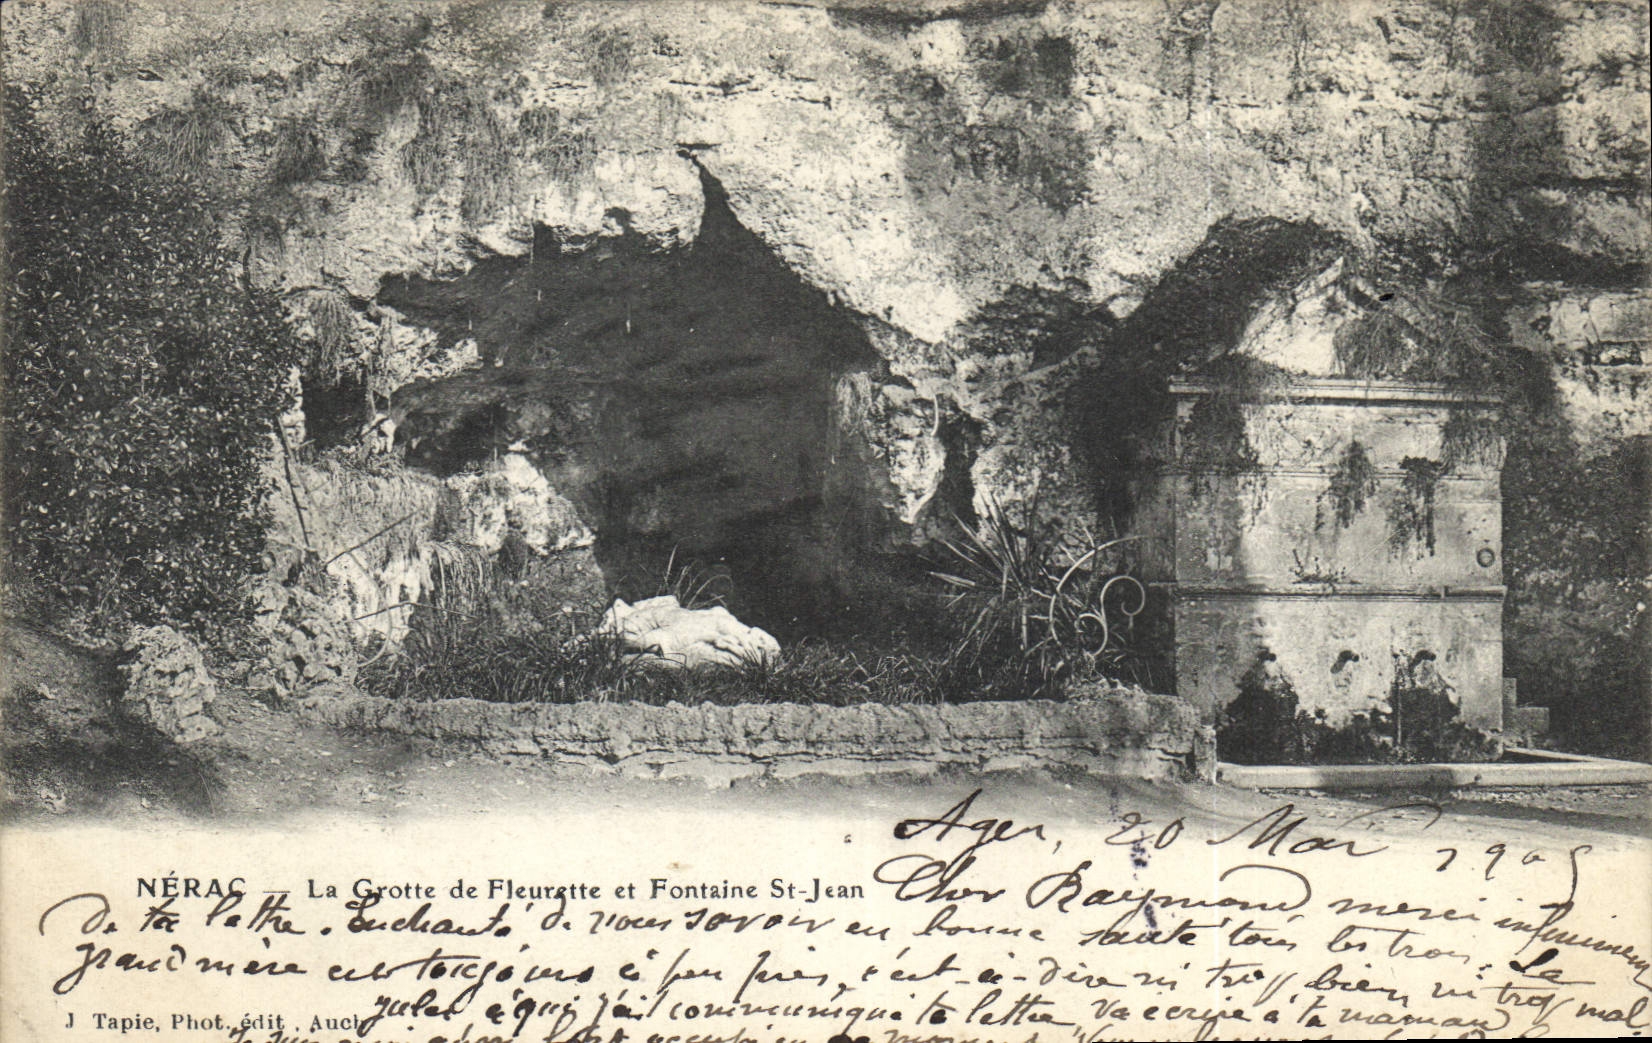 Agen, 20 Mai 1905
NÉRAC — La Grotte de Fleurette et Fontaine St-Jean
Cher Raymond merci infiniment
De ta lettre. Enchanté de vous savoir en bonne santé tous les trois. La
grand mère est toujours à peu près, c'est-à-dire ni trop bien ni trop mal.
Jules à qui j'ai communiqué ta lettre, va écrire à ta maman
J Tapie, Phot. édit., Auch